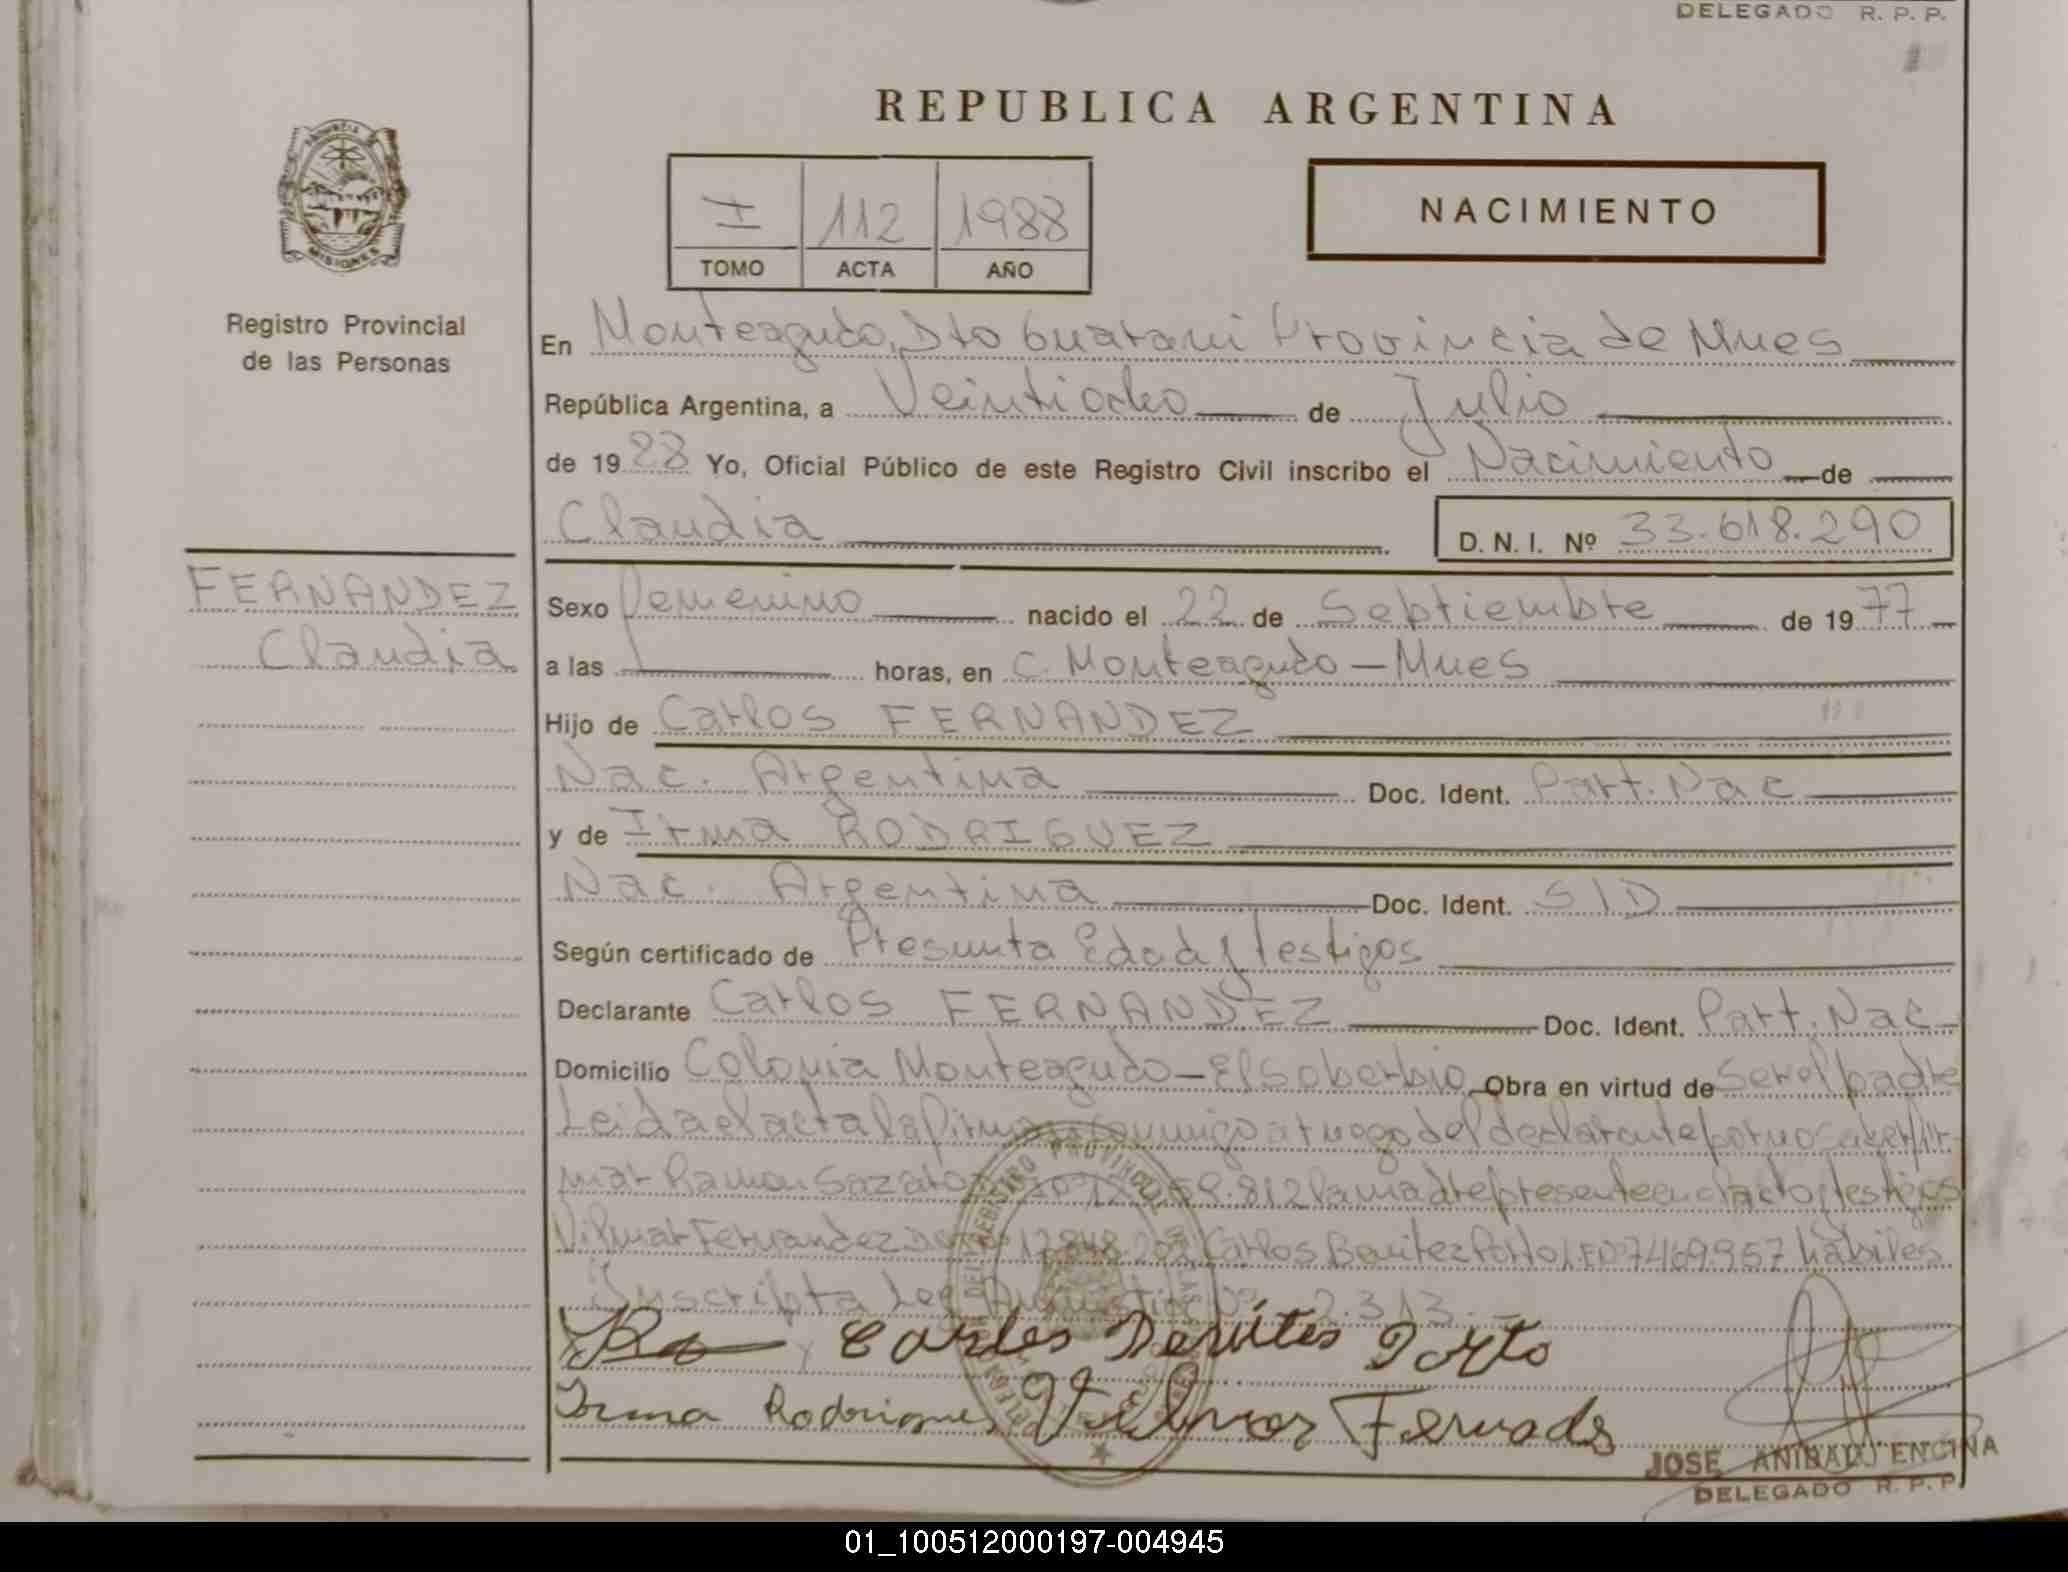 DELEGADO R. P. P.
REPUBLICA ARGENTINA
PROVINCIA DE
MISIONES
I 112 1988
TOMO ACTA AÑO
NACIMIENTO
Registro Provincial
de las Personas
En Monteagudo, Dto Guarani Provincia de Mnes
República Argentina, a Veintiocho de Julio
de 1988 Yo, Oficial Público de este Registro Civil inscribo el Nacimiento de
Claudia D. N. I. Nº 33.618.290
FERNANDEZ
Claudia
Sexo femenino nacido el 22 de Septiembre de 1977
a las horas, en C. Monteagudo - Mnes
Hijo de Carlos FERNANDEZ
Nac. Argentina Doc. Ident. Part. Nac
y de Irma RODRIGUEZ
Nac. Argentina Doc. Ident. S/D
Según certificado de Presunta Edad y testigos
Declarante Carlos FERNANDEZ Doc. Ident. Part. Nac
Domicilio Colonia Monteagudo - El Soberbio Obra en virtud de Ser el padre
Leida el acta la firma conmigo a ruego del declarante por no saber fir
mar Ramon 812 la madre presente en el acto y testigos
Vilmar Fernandez Carlos Benitez Porto 7469.957 hábiles
Inscripta Ley Nº 2.313
Carlos Benítes Porto
Irma Rodrigues Vilmar Fernades
JOSE ANIBAL ENCINA
DELEGADO R. P. P.
01_100512000197-004945